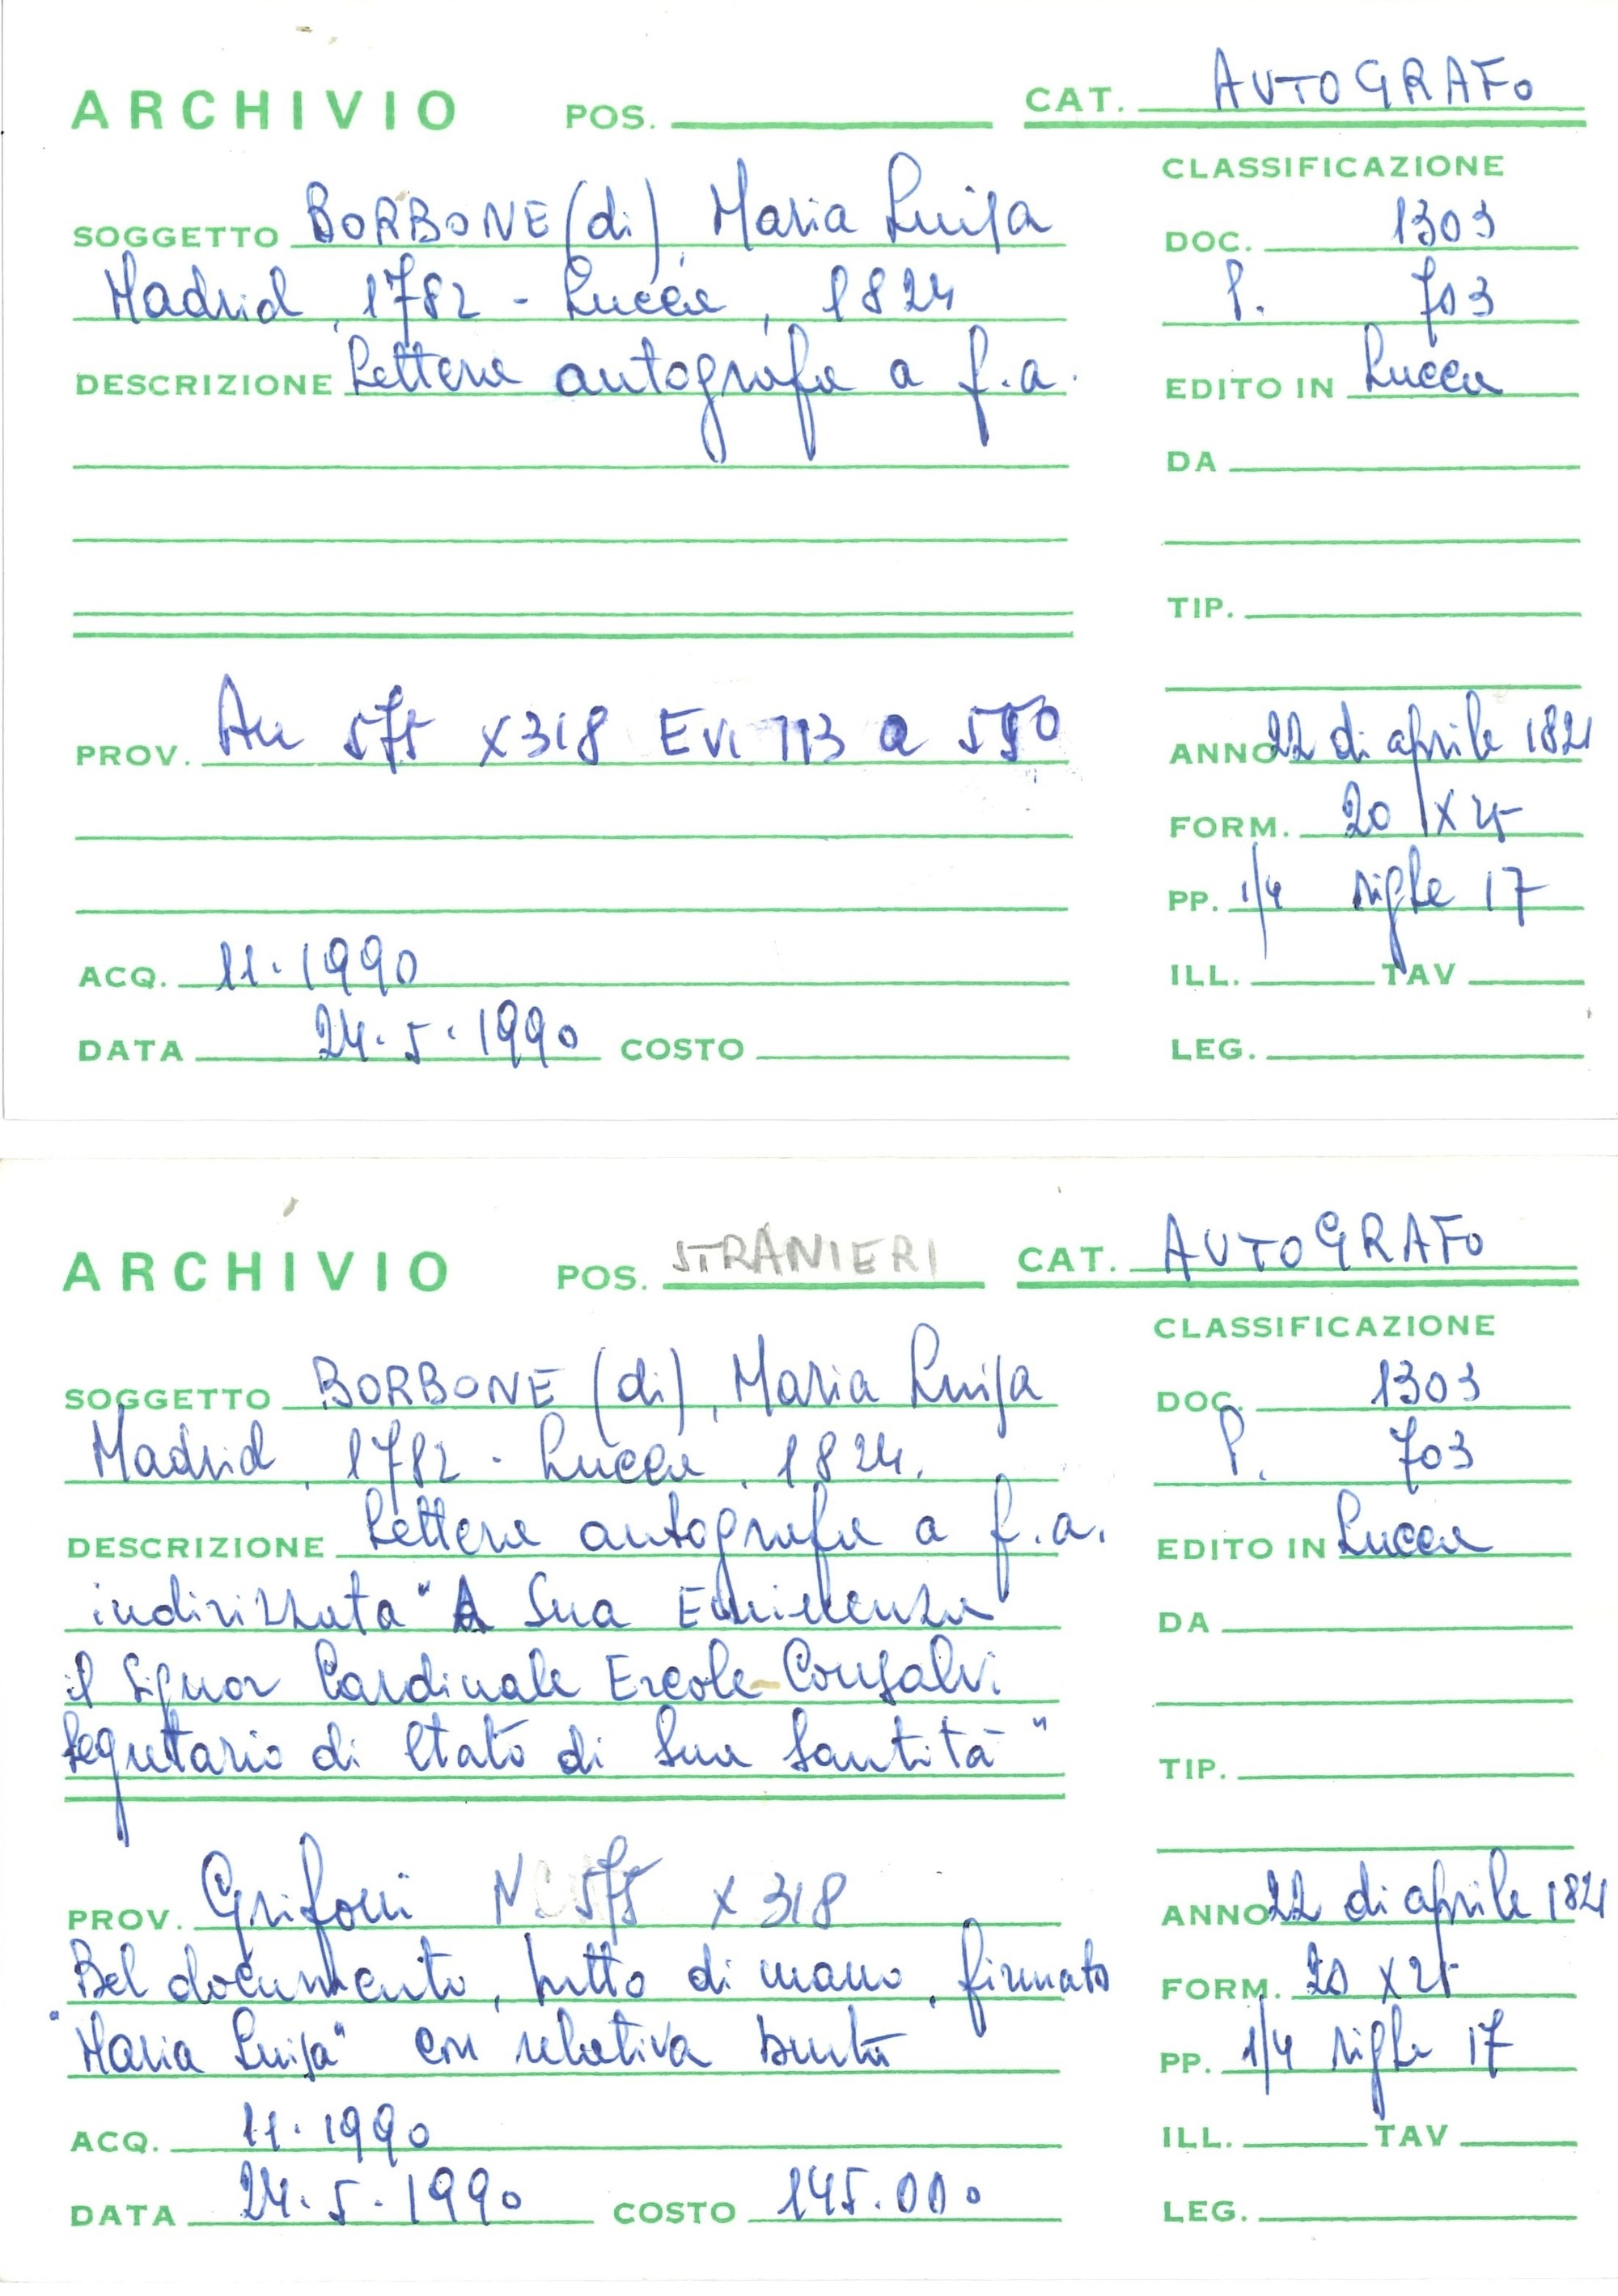 ARCHIVIO POS. CAT. AUTOGRAFO
CLASSIFICAZIONE
SOGGETTO BORBONE (di), Maria Luisa
DOC. 1303
Madrid, 1782 - Lucca, 1824
P. 703
DESCRIZIONE Lettera autografa a f.a.
EDITO IN Lucca
DA
TIP.
PROV. 575 X318 a 550
ANNO 22 di aprile 1821
FORM. 20 X 25
PP. 1/4 righe 17
ACQ. 11.1990
ILL. TAV
DATA 24.5.1990 COSTO
LEG.
ARCHIVIO POS. STRANIERI CAT. AUTOGRAFO
CLASSIFICAZIONE
SOGGETTO BORBONE (di), Maria Luisa
DOC. 1303
Madrid, 1782 - Lucca, 1824.
P. 703
DESCRIZIONE Lettera autografa a f.a.
EDITO IN Lucca
indirizzata "A Sua Eminenza
DA
il Signor Cardinale Ercole Consalvi
Segretario di Stato di Sua Santità"
TIP.
PROV. Grifoni N 575 X 318
ANNO 22 di aprile 1821
Bel documento, tutto di mano, firmato
FORM. 20 X 25
"Maria Luisa" con relativa busta
PP. 1/4 righe 17
ACQ. 11.1990
ILL. TAV
DATA 24.5.1990 COSTO 145.000
LEG.